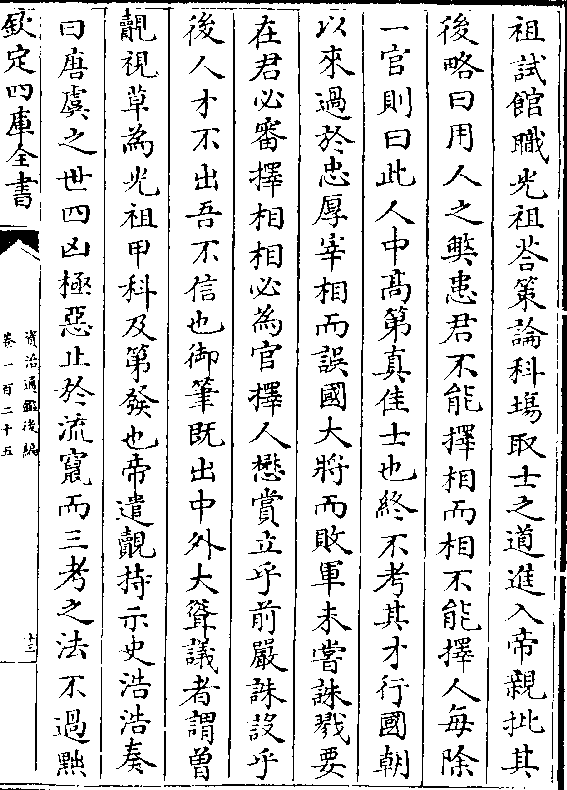 祖試館職光祖答策論科塲取士之道進入帝親批其
後略曰用人之弊患君不能擇相而相不能擇人毎除
一官則曰此人中髙第真佳士也終不考其才行國朝
以來過於忠厚宰相而誤國大將而敗軍未嘗誅戮要
在君必審擇相相必為官擇人懋賞立乎前嚴誅設乎
後人才不出吾不信也御筆既出中外大聳議者謂曽
覿視草為光祖甲科及第發也帝遣覿持示史浩浩奏
曰唐虞之世四凶極惡止於流竄而三考之法不過黜
欽定四庫全書
資治通鑑後編
卷一百二十五
十三